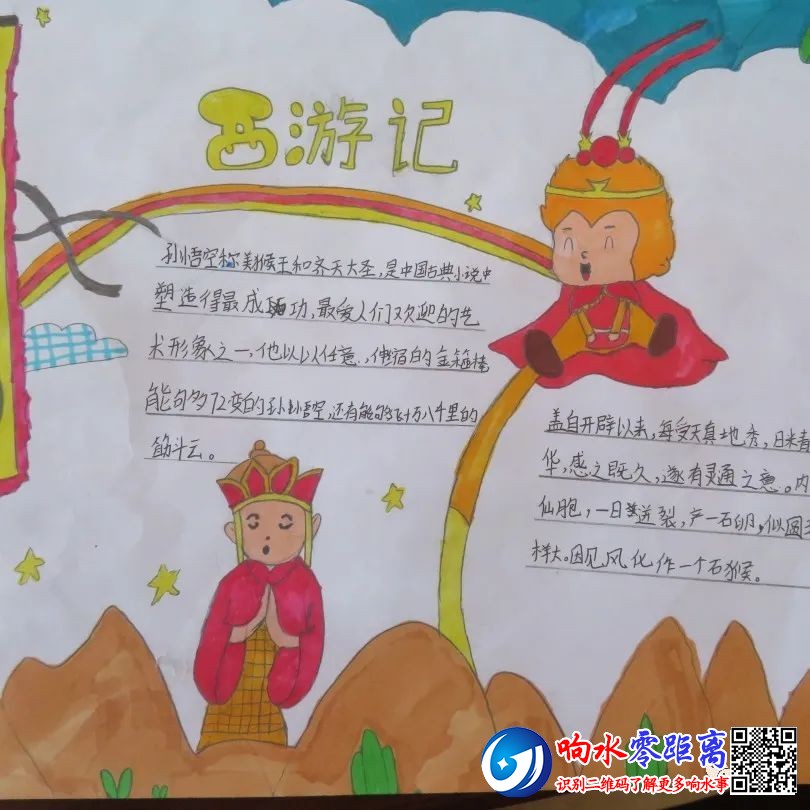 西游记
孙悟空称美猴王和齐天大圣，是中国古典小说中
塑造得最成功，最受人们欢迎的艺
术形象之一，他以以任意，伸缩的金箍棒
能够多72变的孙悟空，还有能够多行十万八千里的
筋斗云。
盖自开辟以来，每受天真地秀，日米青
华，感之既久，遂有灵通之意。内
仙胞，一日迸裂，产一石卵，似圆
样大。因见风化作一个石猴。
响水零距离
识别二维码了解更多响水事